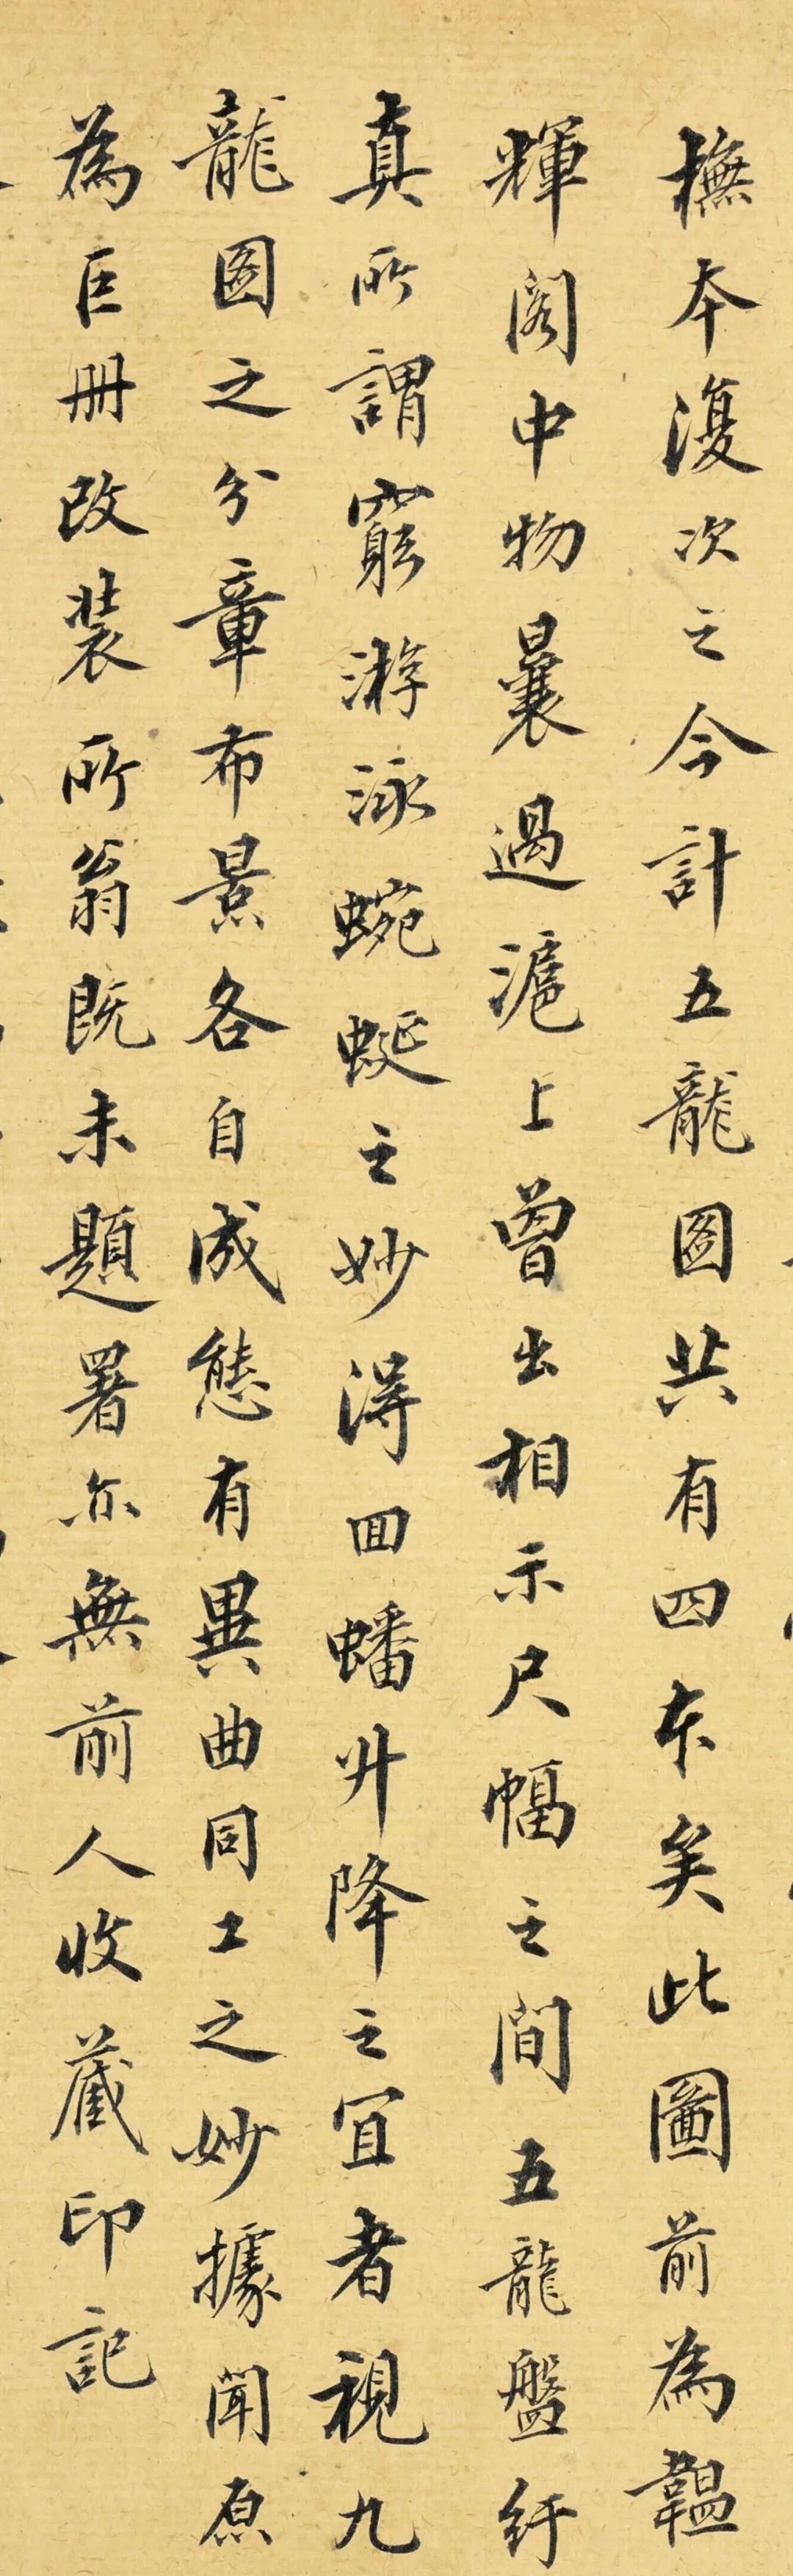 橅本復次之今計五龍圖共有四本矣此圖前為韞
輝阁中物曩過滬上曾出相示尺幅之間五龍盤紆
真所謂窮游泳蜿蜒之妙得回蟠升降之宜者視九
龍圖之分章布景各自成態有異曲同工之妙據聞原
為巨册改裝所翁既未題署亦無前人收藏印記